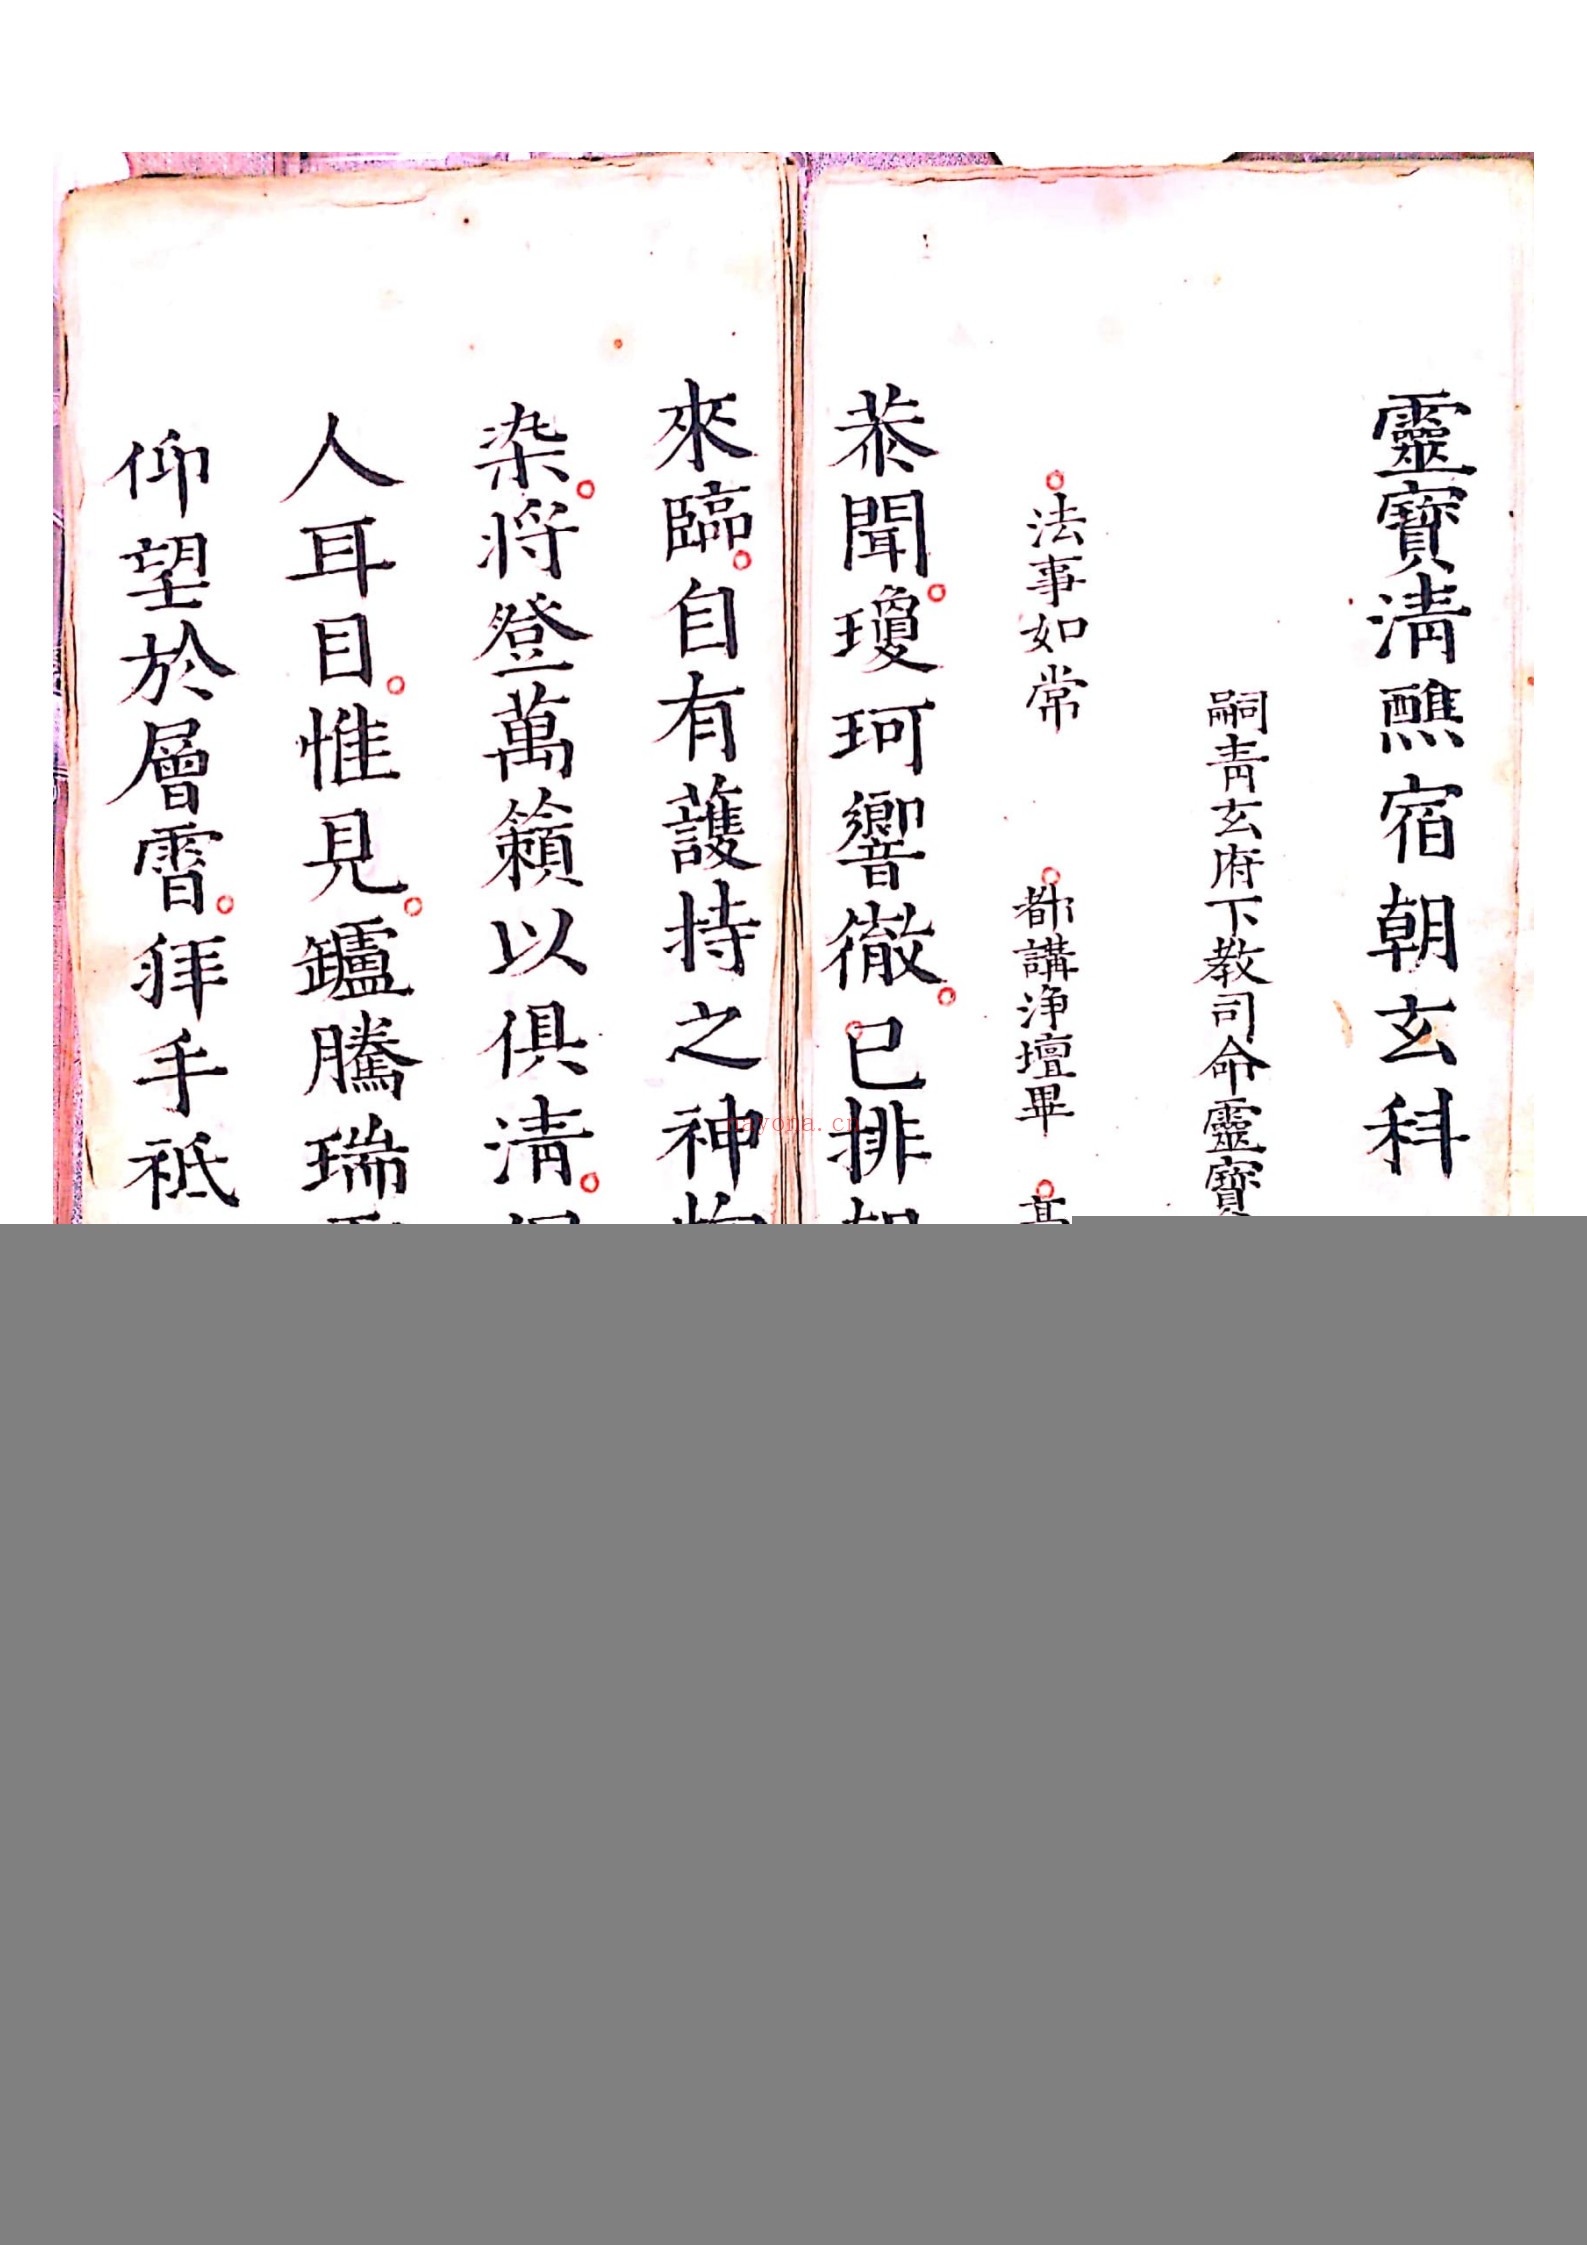 靈寶清醮宿朝玄科
嗣青玄府下教司命靈寶
法事如常 都講淨壇畢
恭聞瓊珂響徹已排
來臨自有護持之神
染將登萬籟以俱清
人耳目惟見鑪騰瑞
仰望於層霄拜手祗